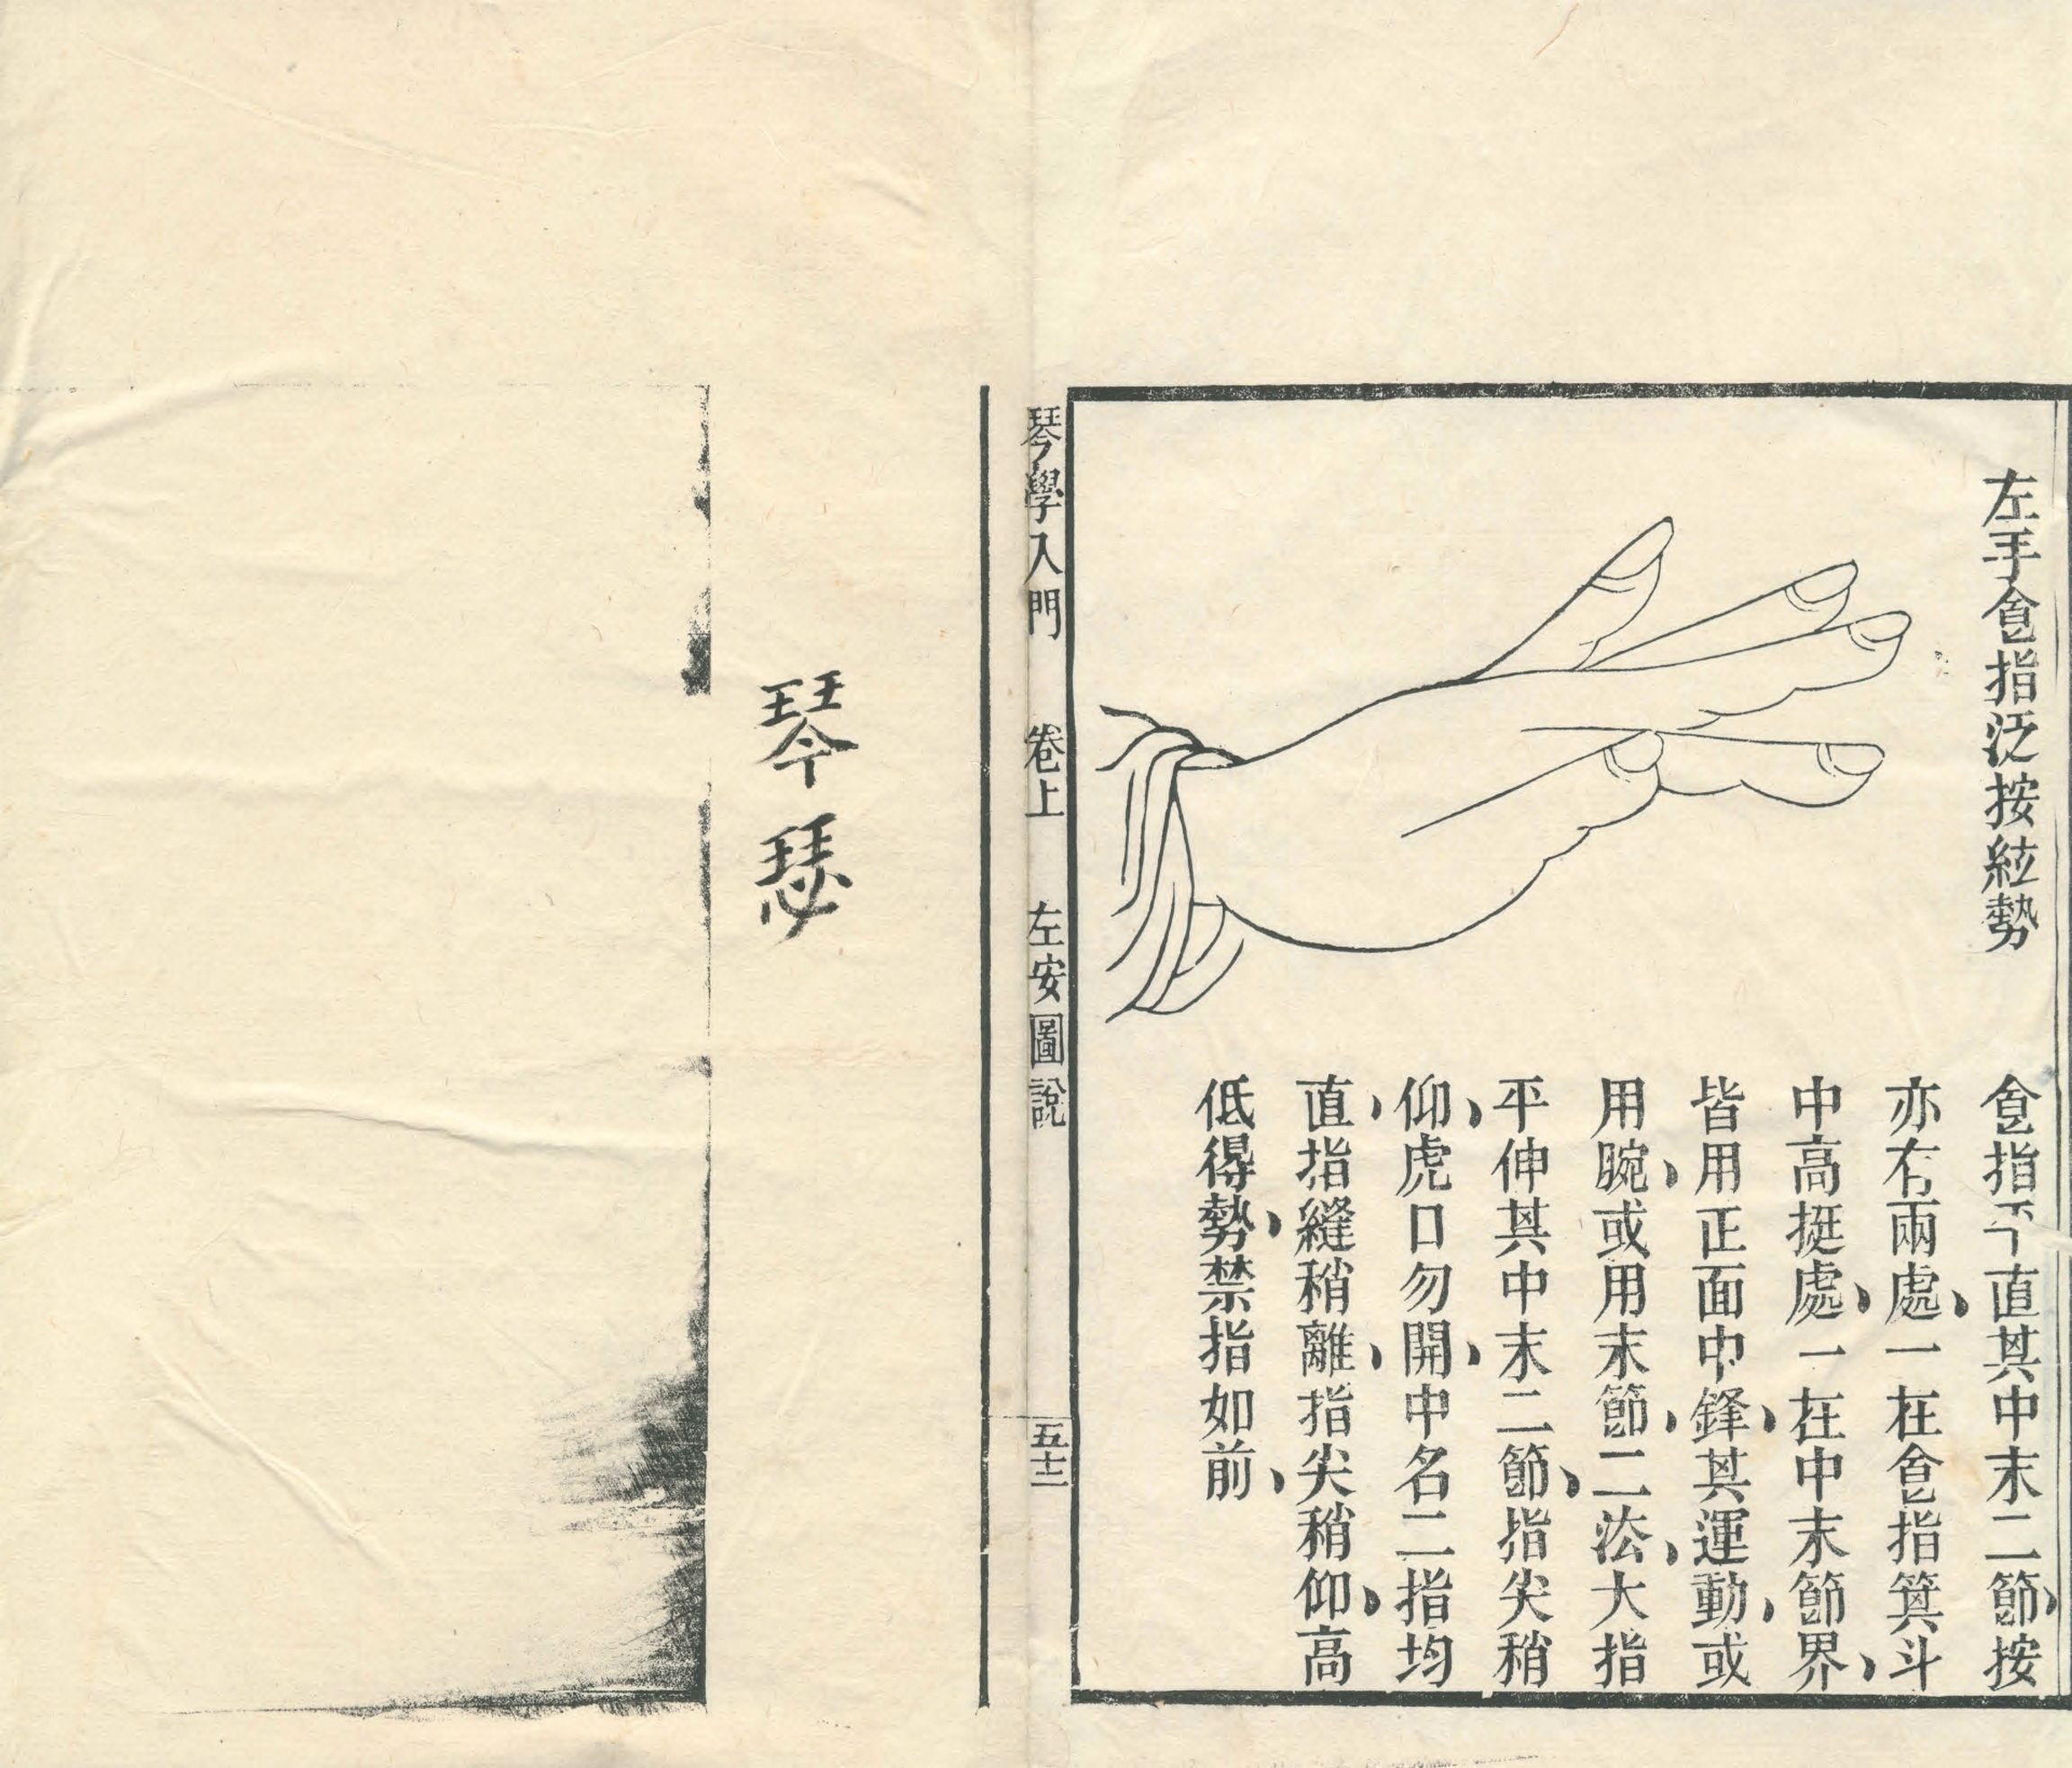 左手食指泛按絃勢
食指平直其中末二節、按
亦有兩處、一在食指箕斗
中高挺處、一在中末節界、
皆用正面中鋒、其運動、或
用腕、或用末節、二法、大指
平伸其中末二節、指尖稍
仰、虎口勿開、中名二指均
直、指縫稍離、指尖稍仰、高
低得勢、禁指如前、
琴學入門 卷上 左安圖說 五十二
琴瑟